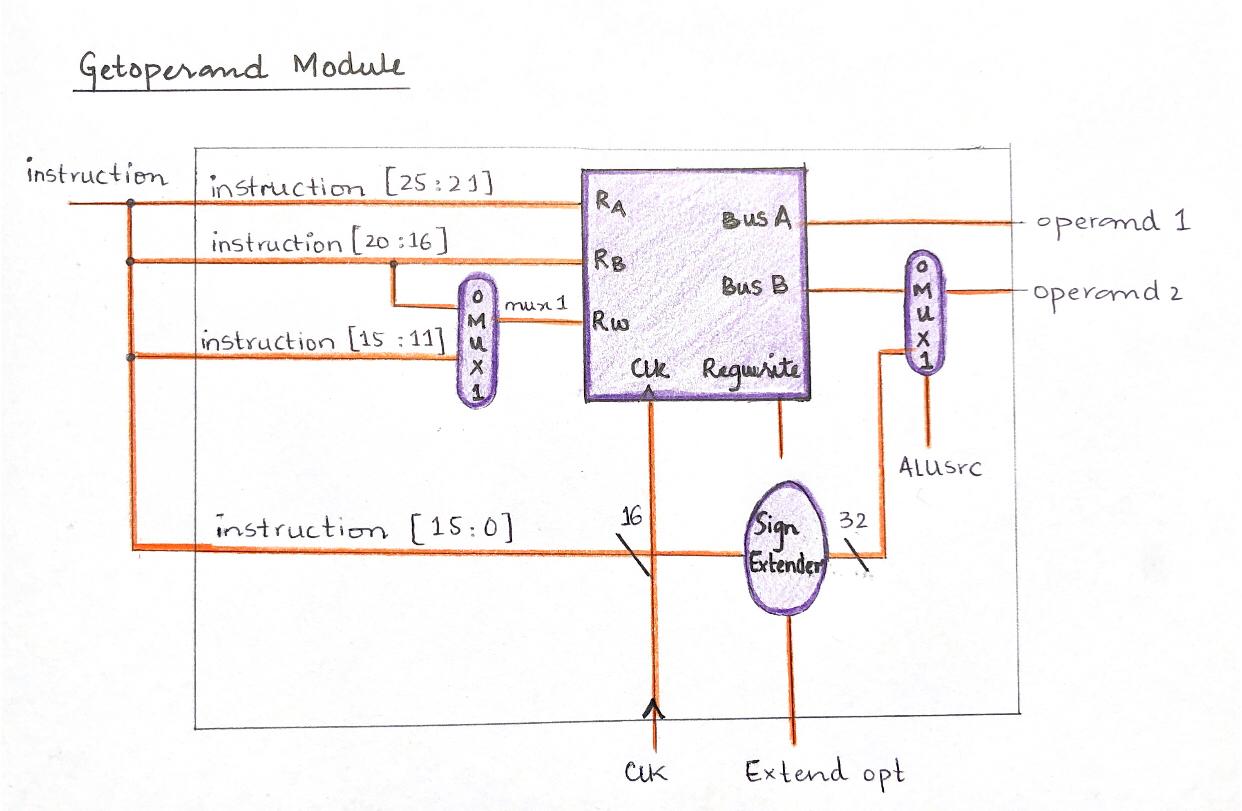 Getoperand Module
instruction
instruction [25:21]
instruction [20:16]
instruction [15:11]
0 MUX 1
mux1
RA
RB
Rw
Clk
Bus A
Bus B
Requisite
0 MUX 1
operand 1
operand 2
ALUsrc
instruction [15:0]
16
Sign
Extender
32
Clk
Extend opt